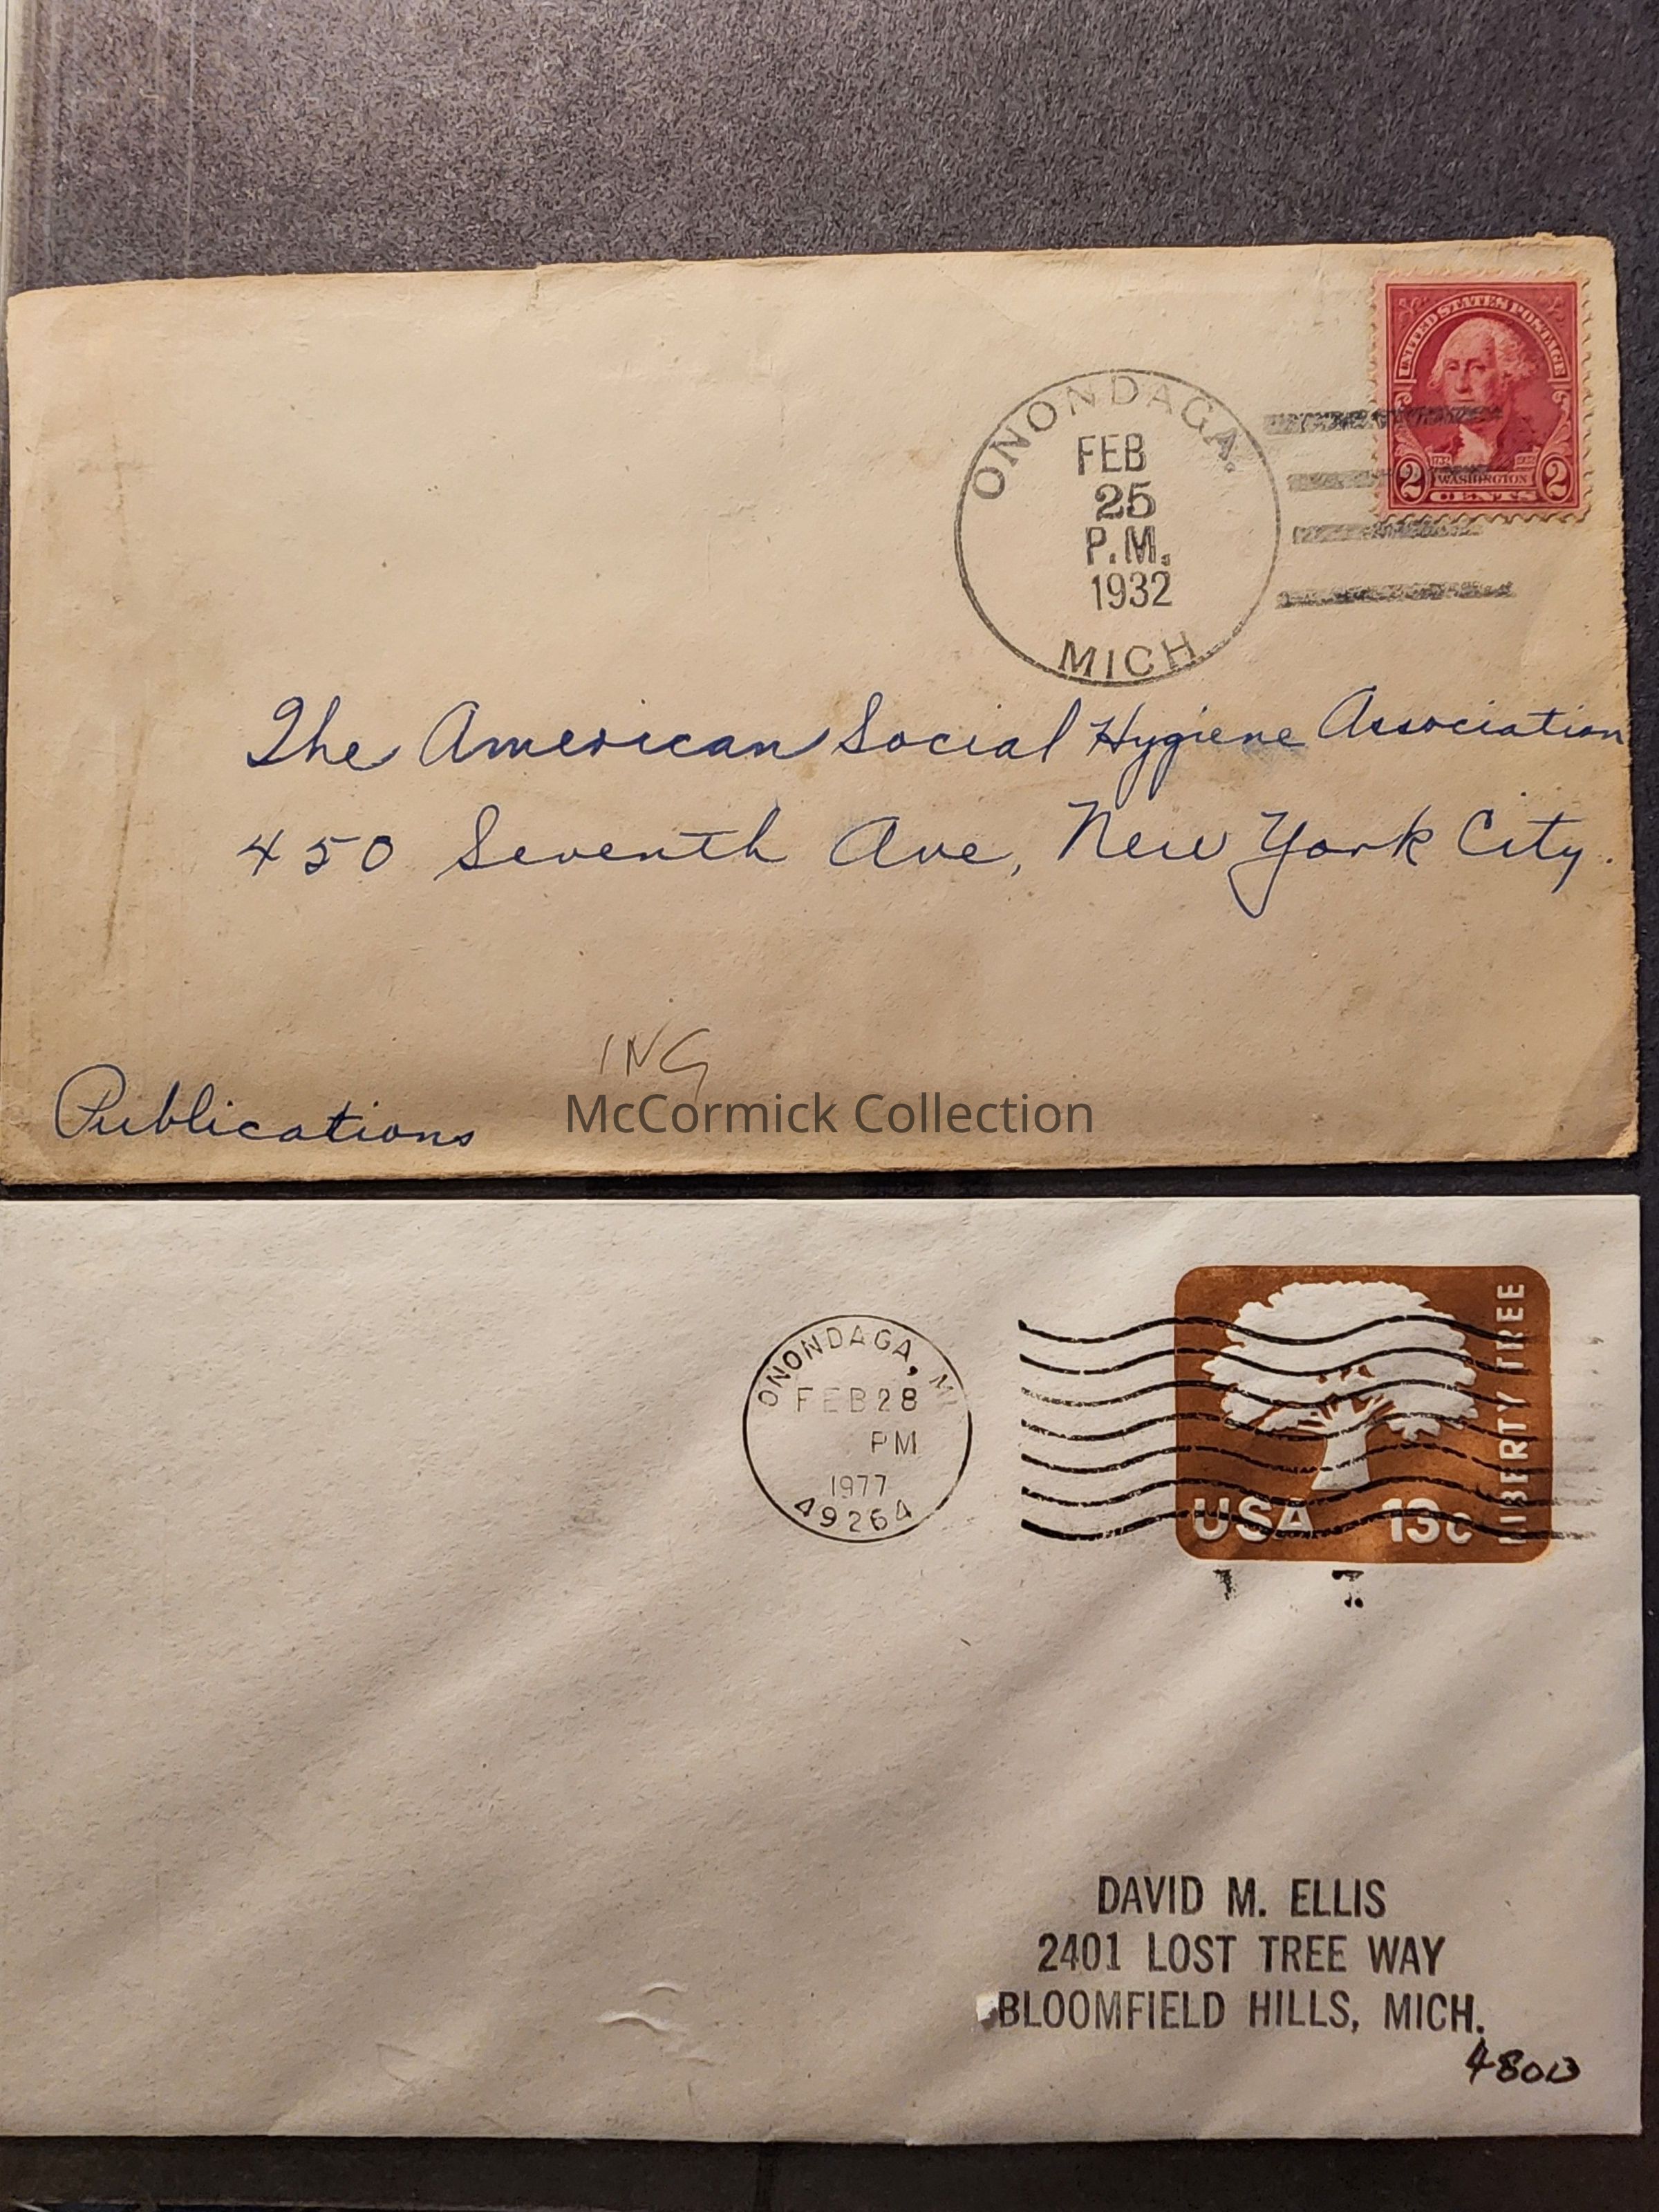 UNITED STATES POSTAGE
2 WASHINGTON 2
CENTS
ONONDAGA.
FEB
25
P.M.
1932
MICH
The American Social Hygiene Association
450 Seventh Ave, New York City.
ING
Publications
McCormick Collection
ONONDAGA, MI
FEB 28
PM
1977
49264
LIBERTY TREE
USA 13c
DAVID M. ELLIS
2401 LOST TREE WAY
BLOOMFIELD HILLS, MICH.
48013